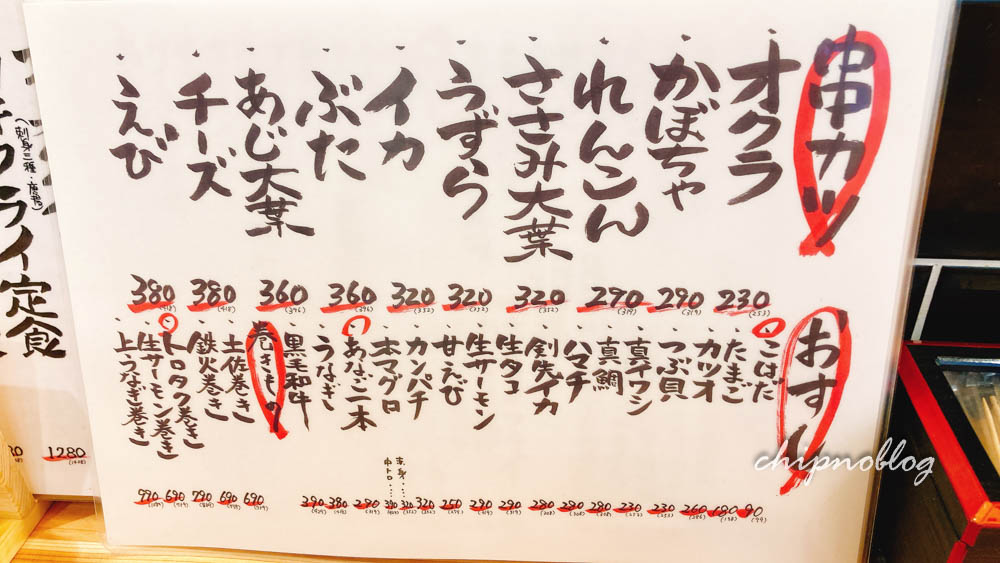 串カツ
・オクラ 230 (253)
・かぼちゃ 290 (319)
・れんこん 290 (319)
・ささみ大葉 320 (352)
・うずら 320 (352)
・イカ 320 (352)
・ぶた 360 (396)
・あじ大葉 360 (396)
・チーズ 380 (418)
・うえび 380 (418)
おすし
・こはだ 90 (99)
・たまご 180 (198)
・カツオ 260 (286)
・つぶ貝 230 (253)
・真イワシ 230 (253)
・真鯛 280 (308)
・ハマチ 280 (308)
・剣先イカ 280 (308)
・生タコ 290 (319)
・生サーモン 290 (319)
・甘えび 250
・カンパチ 320 (352)
・本マグロ
赤身・・・ 320 (352)
中トロ・・・
・あなご一本 290 (319)
・うなぎ 380 (418)
・黒毛和牛 290
巻きもの
・土佐巻き 690
・鉄火巻き 690
・トロタク巻き 790
・生サーモン巻き 690
・上うなぎ巻き 990
フライ定食
(刺身三種・唐揚)
1280 (1408)
chipnoblog